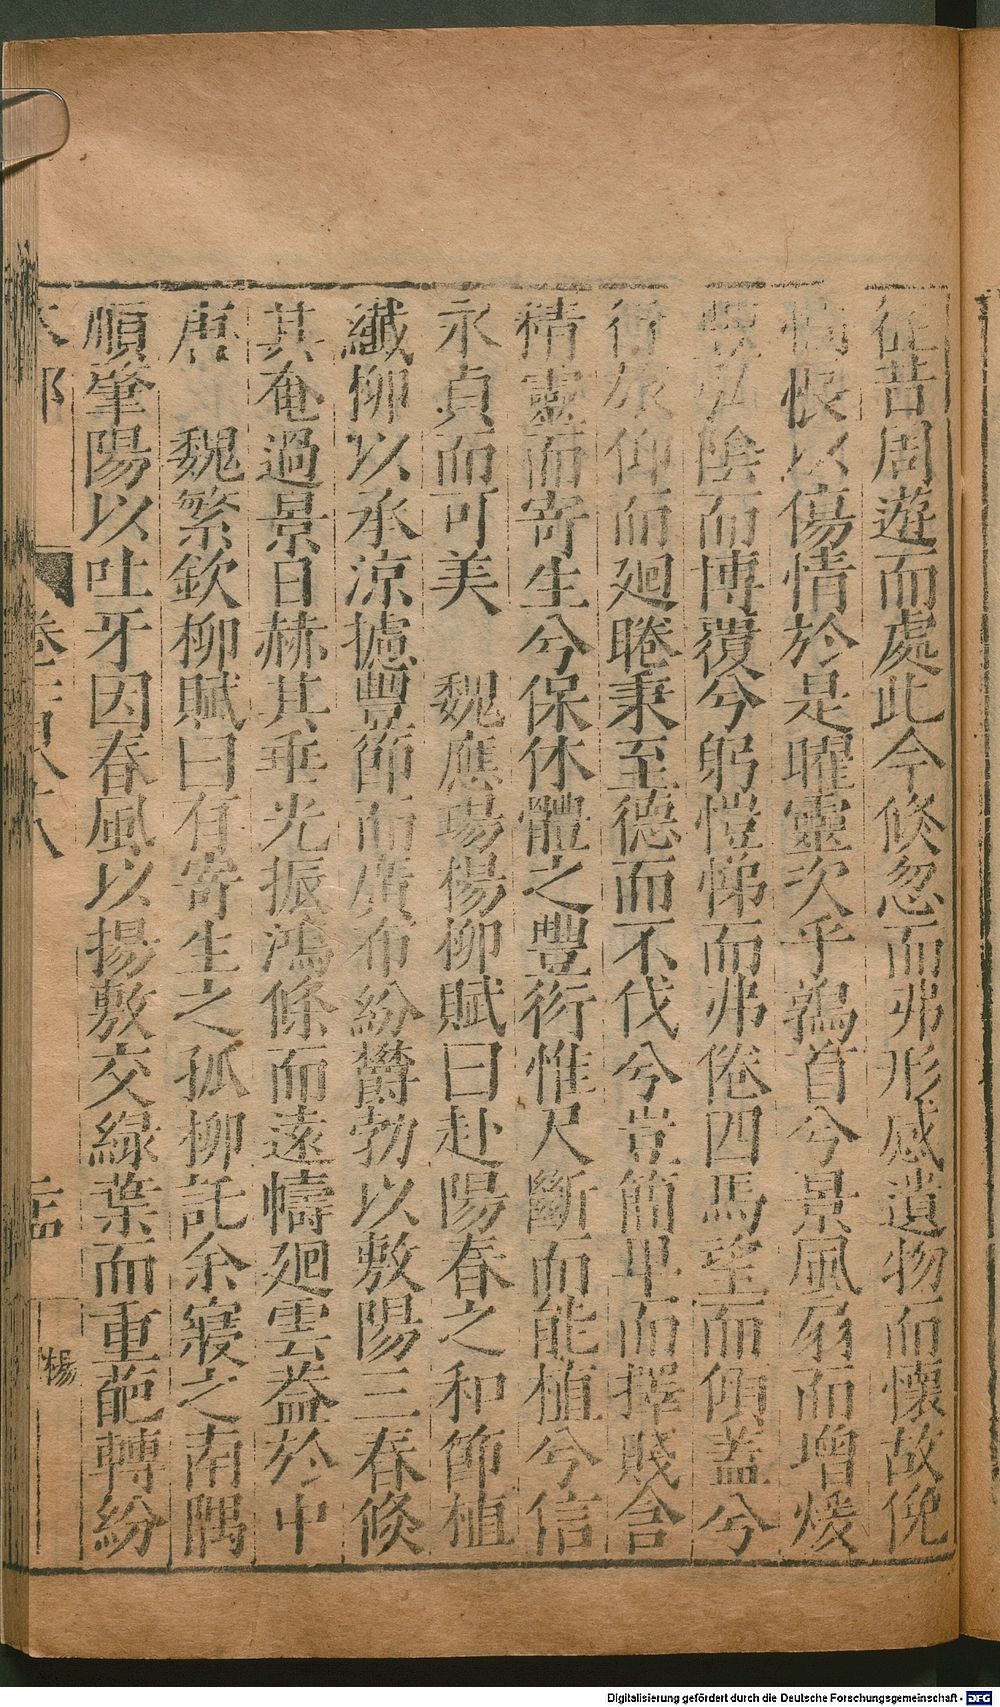 征昔周遊而處此今倐忽而弗形感遺物而懷故俛
惆悵以傷情於是曜靈次乎鶉首兮景風扇而增煖
豐弘陰而博覆兮躬愷悌而弗倦四馬望而傾蓋兮
行旅仰而廻睠秉至德而不伐兮豈簡卑而擇賤含
精靈而寄生兮保休體之豐衍惟尺斷而能植兮信
永貞而可美　魏應瑒楊柳賦曰赴陽春之和節植
纖柳以承涼攄豐節而廣布紛欝勃以敷陽三春倐
其奄過景日赫其垂光振鴻條而遠幬廻雲葢於中
唐　魏繁欽柳賦曰有寄生之孤柳託余寢之南隅
順肇陽以吐牙因春風以揚敷交綠葉而重葩轉紛
木部　卷　楊
Digitalisierung gefördert durch die Deutsche Forschungsgemeinschaft - DFG